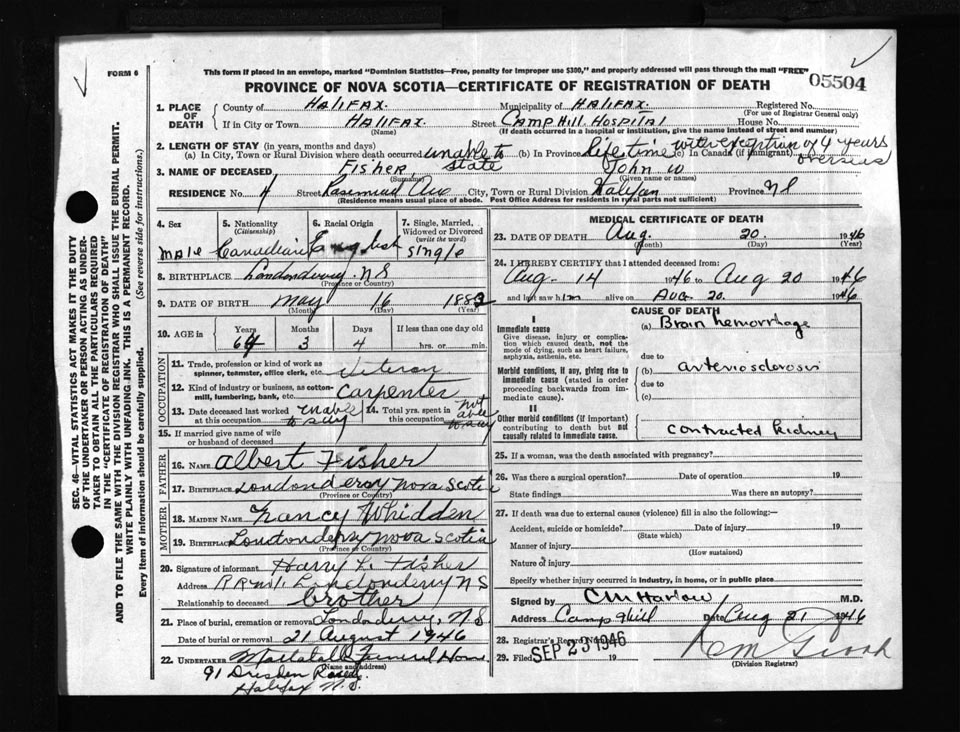 FORM 6
This form if placed in an envelope, marked "Dominion Statistics—Free, penalty for improper use $300," and properly addressed will pass through the mail "FREE"
05504
PROVINCE OF NOVA SCOTIA—CERTIFICATE OF REGISTRATION OF DEATH
1. PLACE OF DEATH
County of HALIFAX. Municipality of HALIFAX. Registered No.
(For use of Registrar General only)
If in City or Town HALIFAX. Street CAMP HILL HOSPITAL House No.
(Name) (If death occurred in a hospital or institution, give the name instead of street and number)
2. LENGTH OF STAY (in years, months and days)
(a) In City, Town or Rural Division where death occurred unable to state (b) In Province life time (c) In Canada (if immigrant) with exception of 4 years overseas
3. NAME OF DECEASED FISHER, John W
(Surname) (Given name or names)
RESIDENCE No. 4 Street Rosemead Ave City, Town or Rural Division Halifax Province NS
(Residence means usual place of abode. Post Office Address for residents in rural parts not sufficient)
4. Sex
male
5. Nationality (Citizenship)
Canadian
6. Racial Origin
English
7. Single, Married, Widowed or Divorced (write the word)
single
8. BIRTHPLACE Londonderry NS
(Province or Country)
9. DATE OF BIRTH May 16 188
(Month) (Day) (Year)
10. AGE in Years Months Days If less than one day
3 4 hrs. or min.
OCCUPATION
11. Trade, profession or kind of work as spinner, teamster, office clerk, etc. Veteran
12. Kind of industry or business, as cotton-mill, lumbering, bank, etc. Carpenter
13. Date deceased last worked at this occupation unable to say
14. Total yrs. spent in this occupation not able to say
15. If married give name of wife or husband of deceased
FATHER
16. NAME Albert Fisher
17. BIRTHPLACE Londonderry Nova Scotia
(Province or Country)
MOTHER
18. MAIDEN NAME Nancy Whidden
19. BIRTHPLACE Londonderry Nova Scotia
(Province or Country)
20. Signature of informant Harry L. Fisher
Address RR no 1. Londonderry NS
Relationship to deceased brother
21. Place of burial, cremation or removal Londonderry, N.S
Date of burial or removal 21 August 1946
22. UNDERTAKER Funeral Home
(Name and address)
91 Dresden Row
Halifax N.S.
MEDICAL CERTIFICATE OF DEATH
23. DATE OF DEATH Aug. 20. 1946
(Month) (Day) (Year)
24. I HEREBY CERTIFY that I attended deceased from:
Aug - 14 1946 to Aug 20 1946
and last saw him alive on Aug. 20. 1946
CAUSE OF DEATH
I
Immediate cause
Give disease, injury or complication which caused death, not the mode of dying, such as heart failure, asphyxia, asthenia, etc.
(a) Brain hemorrhage
due to
Morbid conditions, if any, giving rise to immediate cause (stated in order proceeding backwards from immediate cause).
(b) arteriosclerosis
due to
(c)
II
Other morbid conditions (if important) contributing to death but not causally related to immediate cause.
Contracted kidney
25. If a woman, was the death associated with pregnancy?
26. Was there a surgical operation? Date of operation 19
State findings Was there an autopsy?
27. If death was due to external causes (violence) fill in also the following:—
Accident, suicide or homicide? Date of injury 19
(State which)
Manner of injury
(How sustained)
Nature of injury
Specify whether injury occurred in industry, in home, or in public place
Signed by CM Harlow M.D.
Address Camp Hill Date Aug 21 1946
28. Registrar's Record No.
29. Filed SEP 23 1946
(Division Registrar)
SEC. 46—VITAL STATISTICS ACT MAKES IT THE DUTY OF THE UNDERTAKER OR PERSON ACTING AS UNDERTAKER TO OBTAIN ALL THE PARTICULARS REQUIRED IN THE "CERTIFICATE OF REGISTRATION OF DEATH" AND TO FILE THE SAME WITH THE DIVISION REGISTRAR WHO SHALL ISSUE THE BURIAL PERMIT.
WRITE PLAINLY WITH UNFADING INK. THIS IS A PERMANENT RECORD.
Every item of information should be carefully supplied. (See reverse side for instructions.)